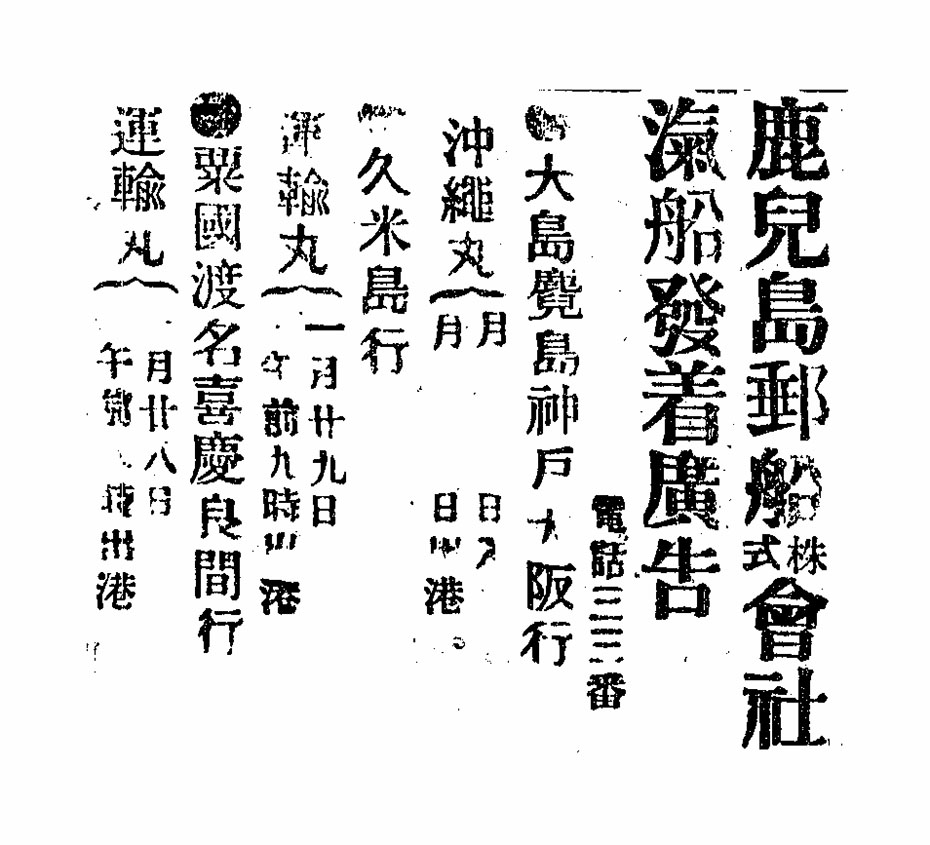 鹿兒島郵船株式會社
滊船發着廣告
電話三三番
●大島麑島神戸大阪行
沖繩丸
月 日入
月 日出港
●久米島行
運輸丸
一月廿九日
午前九時出港
●粟國渡名喜慶良間行
運輸丸
月廿八日
午 時出港